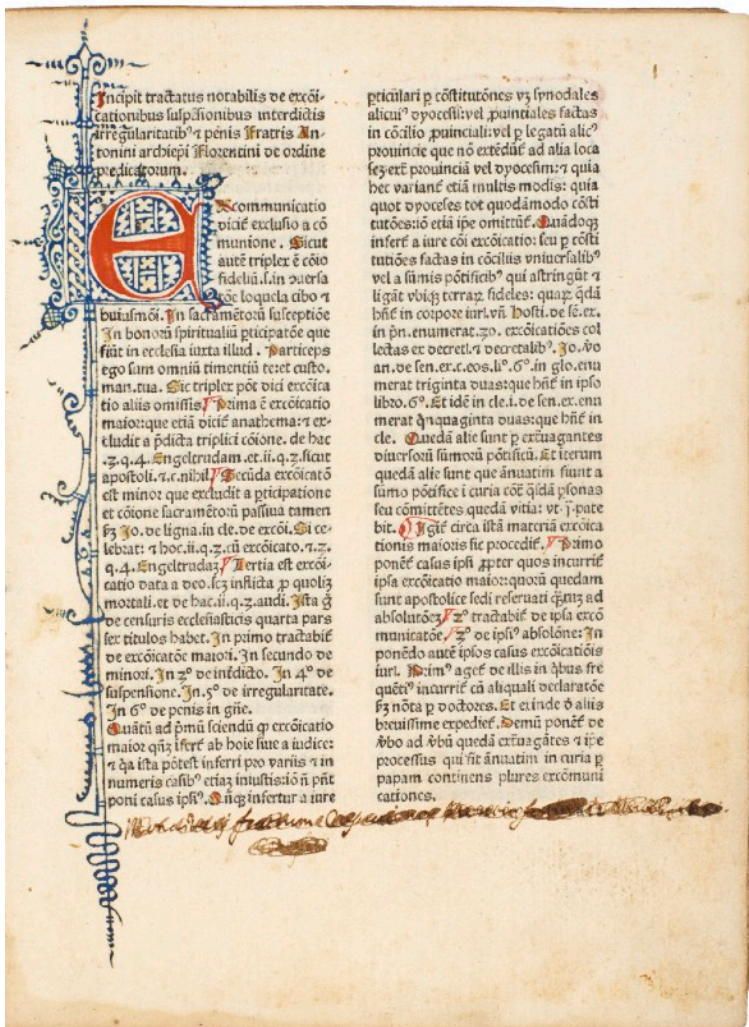 Incipit tractatus notabilis de excōi-
cationibus suspēsionibus interdictis
irregularitatibꝰ ⁊ penis Fratris An-
tonini archiep̄i Florentini de ordine
predicatorum.
Excommunicatio
dicit̄ exclusio a cō
munione . Sicut
autē triplex ē cōio
fideliū.s.in ꝯuersa
tōe loquela cibo ⁊
huiusmōi. In sacramētorū susceptiōe
In bonorū spiritualiū ꝑticipatōe que
fiūt in ecclesia iuxta illud . Particeps
ego sum omniū timentiū te:et custo.
man.tua. Sic triplex pōt dici excōica
tio aliis omissis Prima ē excōicatio
maior:que etiā dicit̄ anathema:⁊ ex-
cludit a p̄dicta triplici cōione. de hac
.3.q.4. Engeltrudam.et.ii.q.3.sicut
apostoli.⁊.c.nihil Secūda excōicatō
est minor que excludit a ꝑticipatione
et cōione sacramētorū passiua tamen
ẜꝫ Jo. de ligna.in cle.de excōi. Si ce-
lebrat: ⁊ hoc.ii.q.3.cū excōicato.⁊.3.
q.4. Engeltrudaꝫ Tertia est excōi-
catio data a deo.scꝫ inflicta ꝓ quoliꝫ
mortali.et de hac.ii.q.3.audi. Ista ḡ
de censuris ecclesiasticis quarta pars
sex titulos habet. In primo tractabit̄
de excōicatōe maiori. In secundo de
minori. In 3º de int̄dicto. In 4º de
suspensione. In.5º de irregularitate.
In 6º de penis in gn̄e.
Quātū ad p̄mū sciendū ꝙ excōicatio
maior qn̄ꝫ īfert̄ ab hoīe siue a iudice:
⁊ q̄a ista pōtest inferri pro variis ⁊ in
numeris casibꝰ etiaꝫ iniustis:iō n̄ pn̄t
poni casus ipsiꝰ. Qn̄qꝫ infertur a iure
ꝑticulari ꝑ cōstitutōnes vꝫ synodales
alicuiꝰ dyocesis:vel ꝓuintiales factas
in cōcilio ꝓuinciali:vel ꝑ legatū alicꝰ
prouincie que nō extēdūt̄ ad alia loca
seꝫ ext̄ prouinciā vel dyocesim:⁊ quia
hec variant̄ etiā multis modis: quia
quot dyoceses tot quodāmodo cōsti
tutōes:iō etiā ip̄e omittūt̄. Quādoqꝫ
infert̄ a iure cōi excōicatio: seu ꝑ cōsti
tutiōes factas in cōciliis vniuersalibꝰ
vel a sūmis pōtificibꝰ qui astringūt ⁊
ligāt vbiqꝫ terraꝝ fideles: quaꝝ q̄dā
hn̄t̄ in corpore iuri.vn̄. Hosti. de sē.ex.
in pn̄.enumerat.30. excōicatiōes col
lectas ex decreti.⁊ decretalibꝰ. Jo.
an.de sen.ex.c.eos.liº.6º.in glo.enu
merat triginta duas:que hn̄t̄ in ipso
libro.6º. Et idē in cle.i.de sen.ex.enu
merat q̄nquaginta duas:que hn̄t̄ in
cle. Quedā alie sunt ꝑ ext̄uagantes
diuersorū sūmorū pōtificū. Et iterum
quedā alie sunt que ānuatim fiunt a
sūmo pōtifice ī curia cōt̄ q̄sdā ꝑsonas
seu cōmittētes quedā vitia: vt ī.pate
bit. Igit̄ circa istā materiā excōica
tionis maioris sic procedit̄. Primo
ponēt̄ casus ipsi ꝓpter quos incurrit̄
ipsa excōicatio maior:quorū quedam
sunt apostolice sedi reseruati quātuꝫ ad
absolutōeꝫ 2º tractabit̄ de ipsa excō
municatōe. 3º de ipsiꝰ absolōne: In
ponēdo autē ipsos casus excōicatiōis
iuri. Primꝰ aget̄ de illis in q̄bus fre
quētiꝰ incurrit̄ cū aliquali declaratōe
ẜꝫ nōta ꝑ doctores. Et exinde d̄ aliis
breuissime expediet̄. Demū ponēt̄ de
v̄bo ad v̄bū quedā ext̄uagātes ⁊ ip̄e
processus qui fit ānuatim in curia ꝑ
papam continens plures excōmuni
cationes.